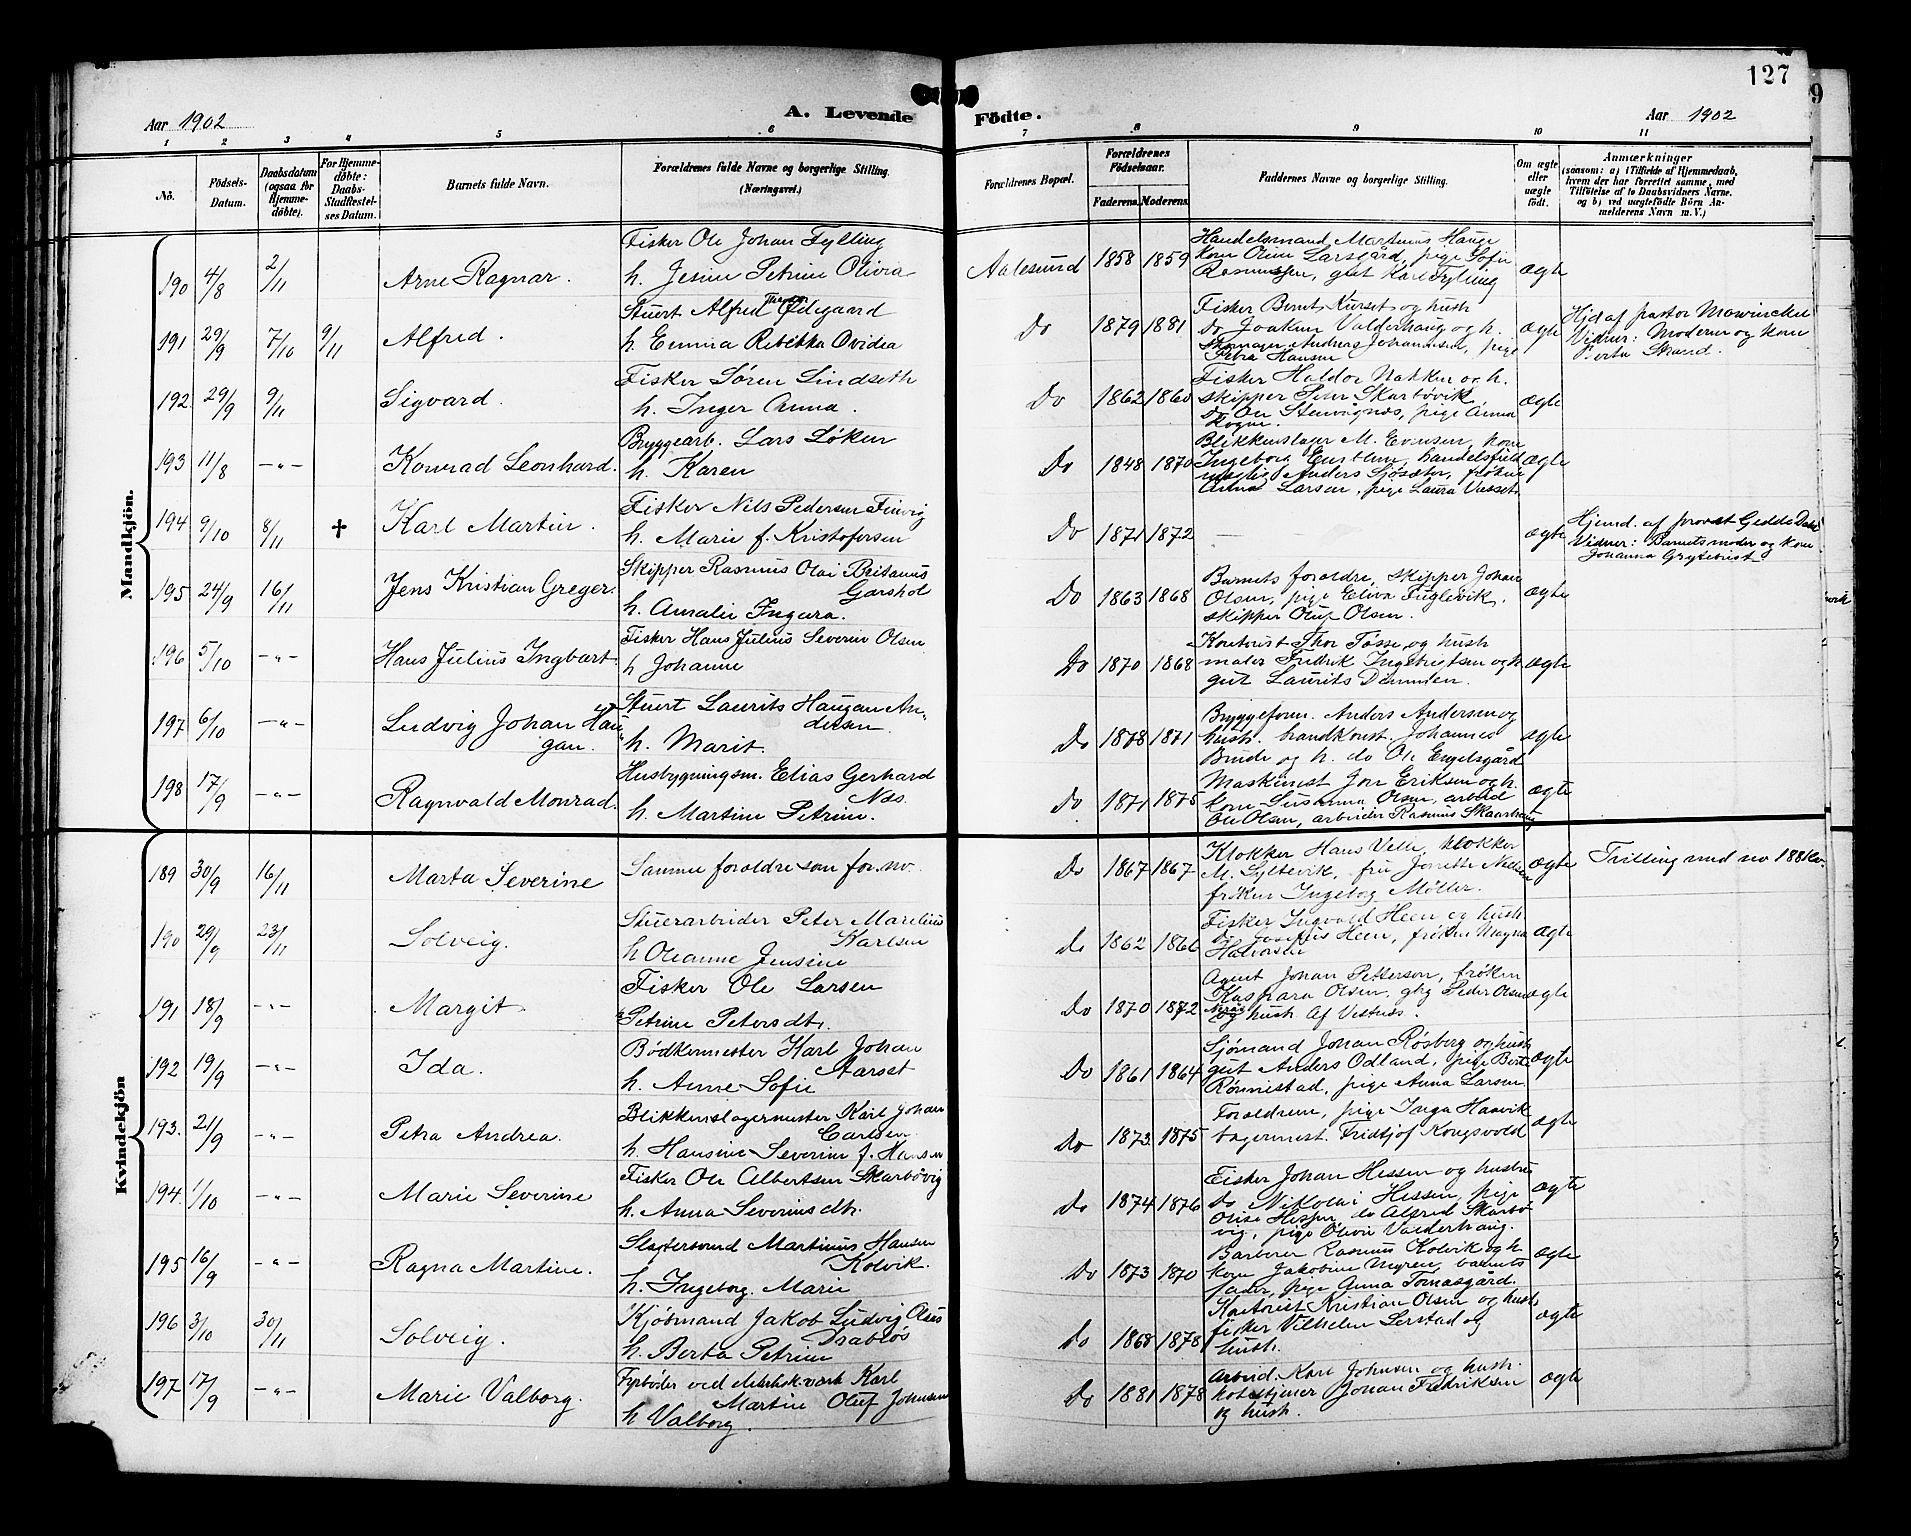 127
9
Aar 1902
A. Levende Födte.
Aar 1902
1 2 3 4 5 6 7 8 9 10 11
Nö.
Födsels-Datum.
Daabsdatum (ogsaa for Hjemme-döbte).
For Hjemme-döbte: Daabs-Stadfæstel-ses Datum.
Barnets fulde Navn.
Forældrenes fulde Navne og borgerlige Stilling.
(Næringsvei.)
Forældrenes Bopæl.
Forældrenes Födselsaar.
Faderens. Moderens.
Faddernes Navne og borgerlige Stilling.
Om ægte eller uægte födt.
Anmærkninger
(saasom: a) i Tilfælde af Hjemmedaab,
hvem der har forrettet samme, med
Tilföielse af to Daabsvidners Navne.
og b) ved uægtefödte Börn An-
melderens Navn m. V.)
Mandkjön.
190 4/8 2/11 Arne Ragnar.
Fisker Ole Johan Fylling
h. Jesine Petrine Olivia
Aalesund 1858 1859
Handelsmand Martinus Hauge
kone Oline Larsgård, pige Sofie
Rasmussen, gut Karl Fylling
ægte
191 29/9 7/10 9/11 Alfred.
Stuert Alfred Ødegaard
h. Emma Rebekka Ovidea
Do 1879 1881
Fisker Bernt Kurset og hustr
Do Joakim Valderhaug og h.
Skomager Andreas Johannesen, pige
Petra Hansen
ægte
Hjd af pastor Mowinckel
Vidner: Moderen og kone
Berta Strand.
192. 29/9 9/11 Sigvard.
Fisker Sören Lindseth
h. Inger Anna.
Do 1862 1860
Fisker Haldor Nakken og h.
skipper Peter Skarbövik,
Do Ole Stenvignæs, pige Anna
ægte
193 11/8 -"- Konrad Leonhard.
Bryggearb. Lars Löken
h. Karen
Do 1848 1870
Blikkenslager M. Evensen, kone
Ingeborg handelsfuld
mægtig Anders Sjösæter, fröken
Anna Larsen, pige Laura Vasset.
ægte
194 9/10 8/11 † Karl Martin.
Fisker Nils Pedersen Finvig
h. Marie f. Kristofersen
Do 1871 1872 —
ægte
Hjemd. af provst Gedde Dahl
Vidner: Barnets moder og kone
Johanna Grytekvist
195 24/9 16/11 Jens Kristian Greger.
Skipper Rasmus Olai Britanus
Garshol
h. Amalie Ingara.
Do 1863 1868
Barnets foraldre, skipper Johan
Olsen, pige Eliva Fuglevik,
skipper Oluf Olsen.
ægte
196 5/10 -"- Hans Julius Ingbart
Fisker Hans Julius Severin Olsen
h Johanne
Do 1870 1868
Kontorist Thor Tösse og hustr
maler Fredrik Ingebrigtsen og h
gut Laurits Dimmen.
ægte
197 6/10 -"- Ludvig Johan Hau-
gan.
Stuert Laurits Haugan An-
dersen.
h. Marit.
Do 1878 1871
Bryggeform. Anders Andersen og
hustr. brandkonst. Johannes
Brude og h. do Ole Engelsgård
ægte
198 17/9 -"- Ragnvald Monrad.
Husbygningsm. Elias Gerhard
Næs.
h. Martine Petrine.
Do. 1871 1875
Maskinist Jon Eriksen og h.
kone Susanna Olsen, arbeid
Ole Olsen, arbeider Rasmus Skaarhaug
ægte
Kvindekjön
189 30/9 16/11 Marta Severine
Samme foraldre som for. no.
Do 1867 1867
Klokker Hans Velle, klokker
M. Syltevik, fru Jonette
fröken Ingeborg Möller.
ægte
Trilling med no 188 kv.
190 29/9 23/11 Solveig.
Stuerarbeider Peter Marelius
Karlsen
h Oleanne Jensine
Do 1862 1866
Fisker Ingvald Heen og hustr
Do Josefus Heen, fröken Magna
Halvorsen
ægte
191 18/9 -"- Margit
Fisker Ole Larsen
h Petrine Petersdtr.
Do 1870 1872
Agent Johan Petterson, fröken
Kaspara Olsen, gbg Peder Olsen
og hustr Af Vestnes.
ægte
192 19/9 -"- Ida.
Bödkermester Karl Johan
Aarset
h. Anne Sofie
Do 1861 1864
Sjömand Johan Rösberg og hustr
gut Anders Odland, pige Berte
Rönnestad, pige Anna Larsen
ægte
193. 21/9 -"- Petra Andrea.
Blikkenslagermester Karl Johan
Carlsen
h. Hansine Severine f. Hansen
Do 1873 1875
Foraldrene, pige Inga Haavik
bagermest. Fridtjof Kongsvold
ægte
194. 1/10 -"- Marie Severine
Fisker Ole Albertsen Skarbövig
h. Anna Severinsdtr.
Do 1874 1876
Fisker Johan Hessen og hustr
Do Nikolai Hessen, pige
Olise Hessen, do Alfred Skarbö-
vig, pige Olivie Valderhaug.
ægte
195 16/9 -"- Ragna Martine.
Slagtersvend Martinus Hansen
Kolvik.
h. Ingeborg Marie
Do 1873 1870
Barberer Rasmus Kolvik og h
kone Jakobine Myren, barnets
fader, pige Anna Tomasgård.
ægte
196 3/10 30/11 Solveig.
Kjöbmand Jakob Ludvig Olaus
Drablös
h. Berta Petrine
Do 1868 1878
Kontorist Kristian Olsen og hustr
fisker Vilhelm Serstad og
hustr.
ægte
197 17/9 -"- Marie Valborg.
Fyrböder ved elektricit. værk Karl
Martin Oluf Johnsen
h Valborg.
Do 1881 1878
Arbeid. Karl Johnsen og hustr.
hotelstjener Johan Fredriksen
og hustr.
ægte